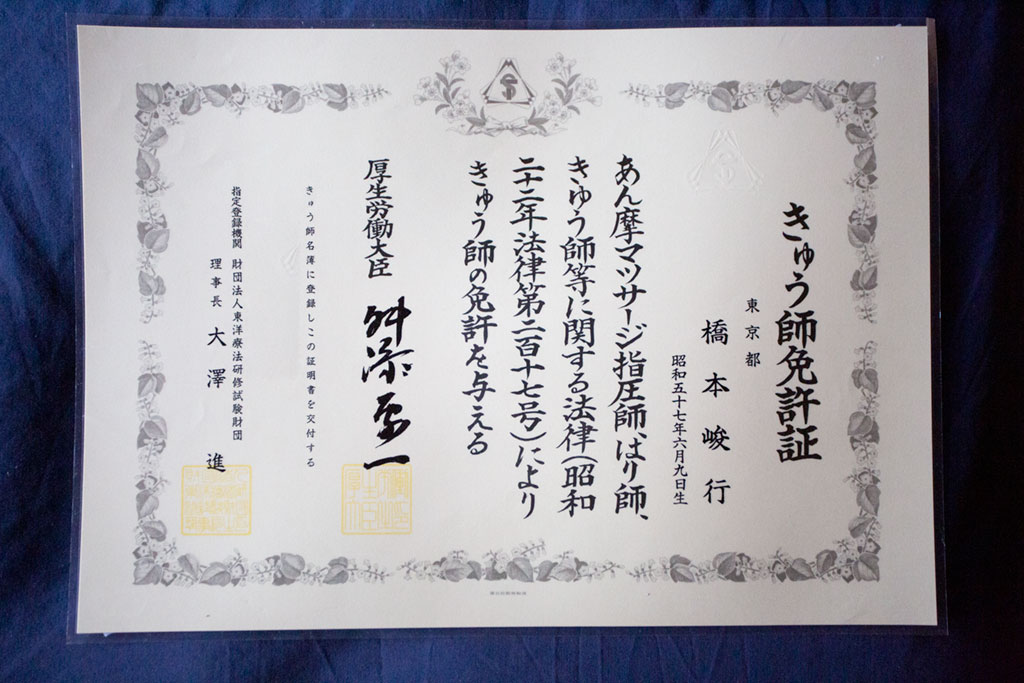 きゅう師免許証
東京都
橋本峻行
昭和五十七年六月九日生
あん摩マツサージ指圧師、はり師、
きゆう師等に関する法律(昭和
二十二年法律第二百十七号)により
きゅう師の免許を与える
厚生労働大臣 舛添要一
きゅう師名簿に登録しこの証明書を交付する
指定登録機関 財団法人東洋療法研修試験財団
理事長 大澤進